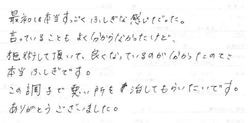 最初は本当すっごくふしぎな感じだった。
言っていることもよく分からなかったけど、
施術して頂いて、良くなっているのが分かったのでて
本当ふしぎです。
この調子で悪い所を治してもらいたいです。
ありがとうございました。